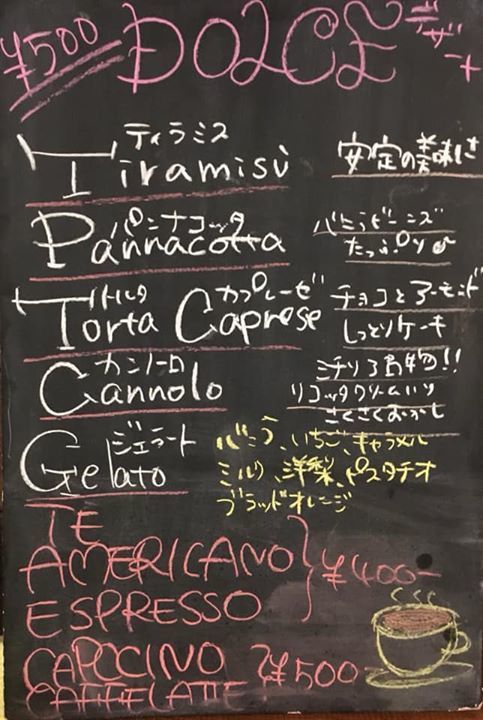 ¥500 DOLCE デザート
ティラミス
Tiramisù 安定の美味しさ
パンナコッタ
Pannacotta バニラビーンズ
たっぷり♂
トルタ カプレーゼ
Torta Caprese チョコとアーモンド
しっとりケーキ
カンノーロ
Cannolo シチリア名物!!
リコッタクリーム入り
さくさくおかし
ジェラート
Gelato バニラ、いちご、キャラメル
ミルク、洋梨、ピスタチオ
ブラッドオレンジ
TE
AMERICANO ¥400-
ESPRESSO
CAPOCINO ¥500-
CAFFELATTE